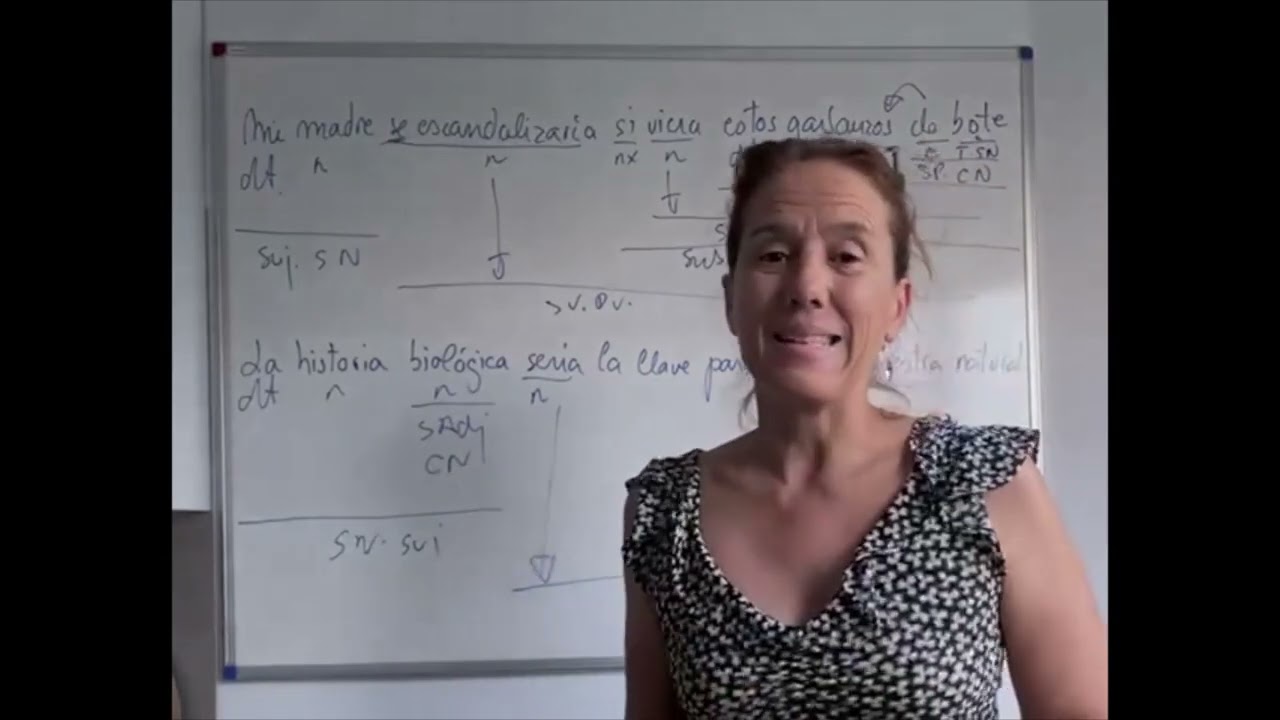 Mi madre se escandalizaria si viera estos garbanzos de bote
dt. n n nx n E T SN
SP. CN
Suj. SN
SV. PV.
La historia biológica sería la llave natural
dt n n n
SAdj
CN
SN. Suj